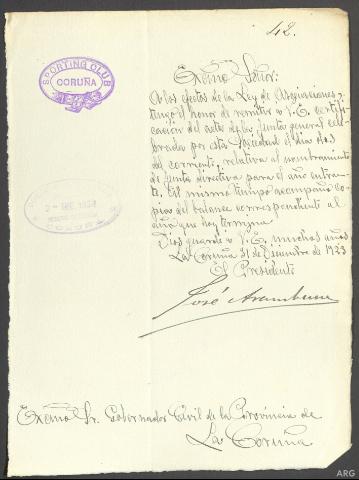 42.
SPORTING CLUB
CORUÑA
Excmo Señor:
A los efectos de la Ley de Asociaciones,
tengo el honor de remitir a V.E. certifi-
cacion del acta de la Junta general cele-
brada por esta Sociedad el dia
del corriente, relativa al nombramiento
de junta directiva para el año entran-
te. Al mismo tiempo acompaño co-
pia del balance correspondiente al
año que hoy termina.
Dios guarde a V.E. muchos años
La Coruña 31 de Diciembre de 1923
El Presidente
José Aramburu
Excmo Sr. Gobernador Civil de la Provincia de
La Coruña
ARG